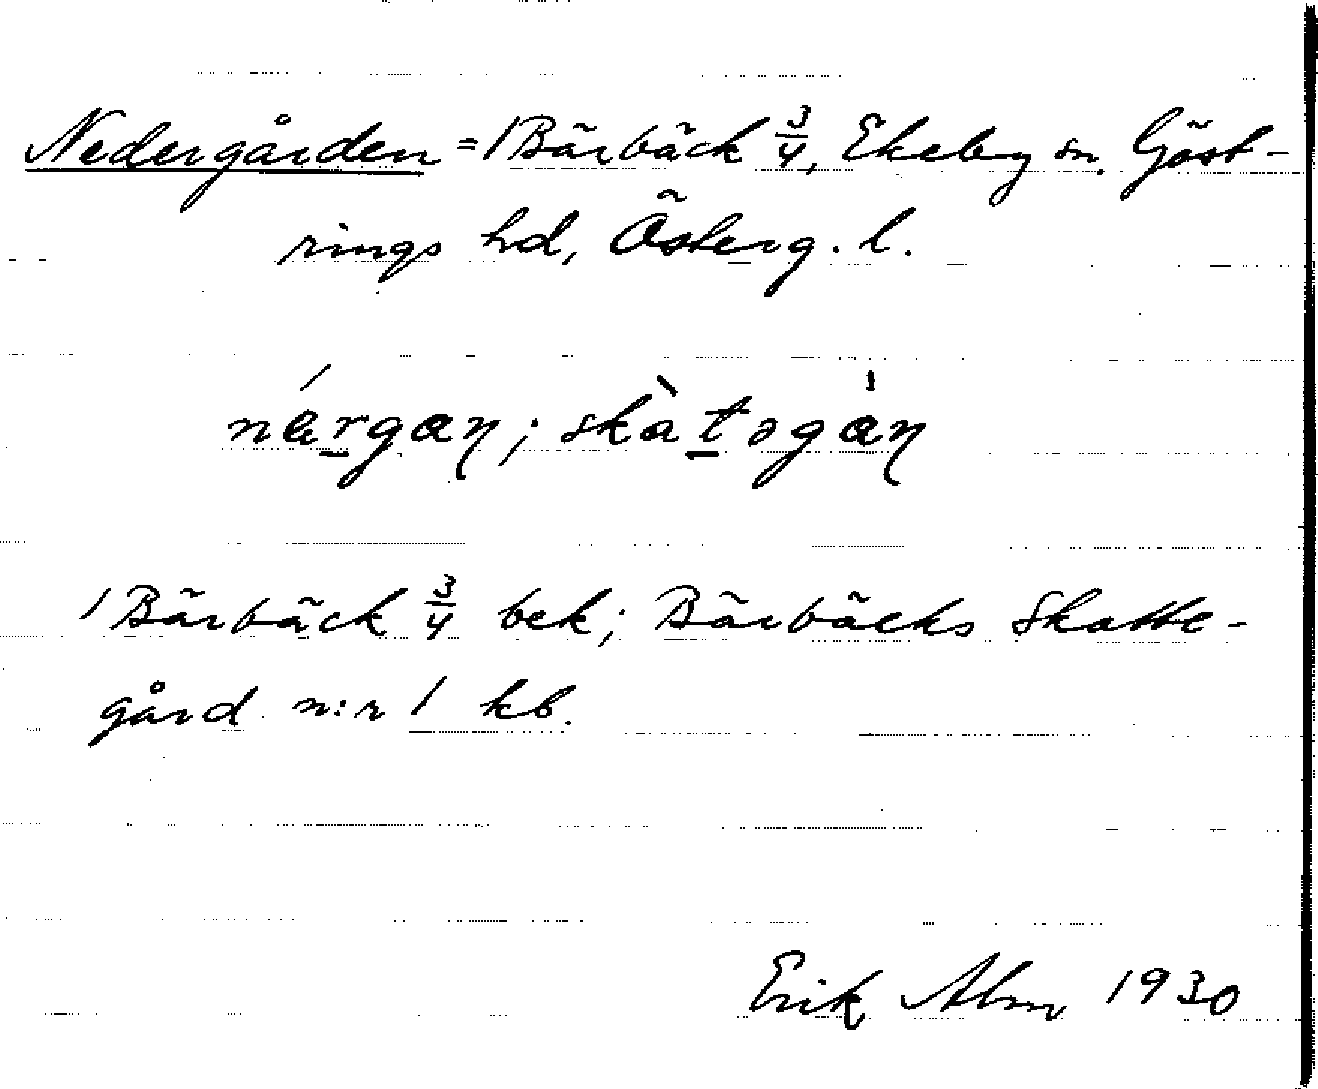 Nedergården = 1 Bärbäck 3/4, Ekeby sn. Göst-
rings hd, Österg. l.
nærgaɳ; skàtəgáɳ
1 Bärbäck 3/4 bek; Bärbäcks Skatte-
gård n:r 1 kb.
Erik Alm 1930